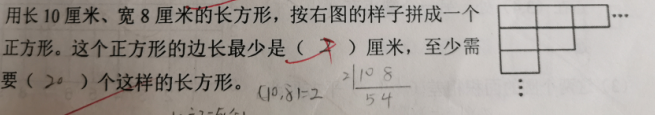 用长 10 厘米、宽 8 厘米的长方形，按右图的样子拼成一个
正方形。这个正方形的边长最少是（ ）厘米，至少需
要（ 20 ）个这样的长方形。 (10,8)=2
2 10 8
5 4